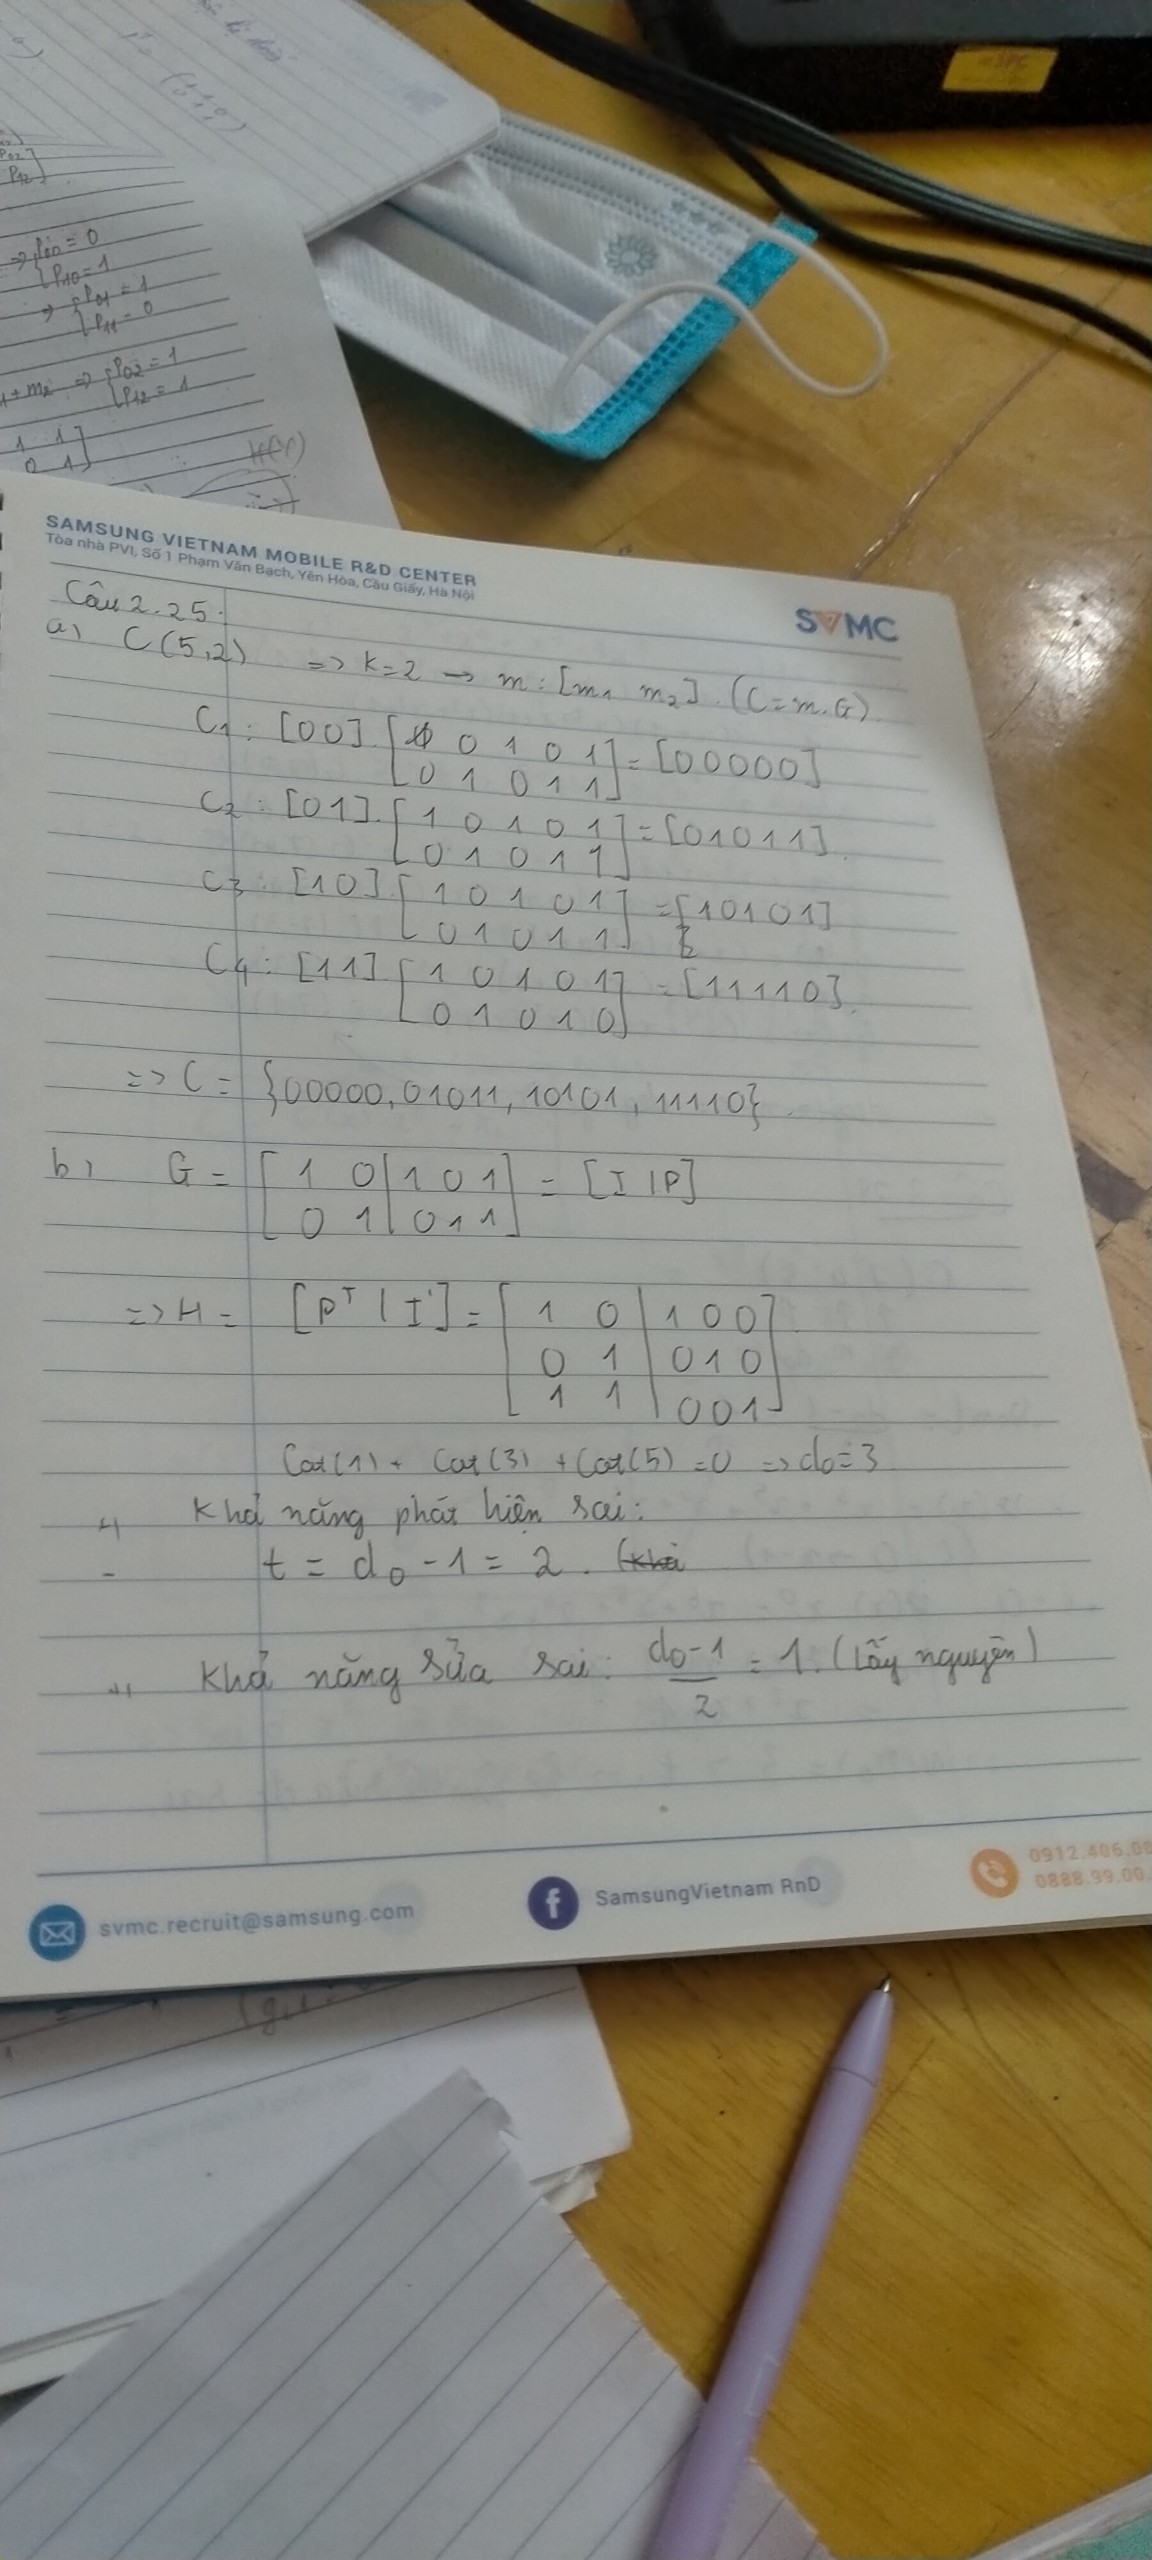 P02
P12]
=> {P00 = 0
P10 = 1
=> {P01 = 1
P11 = 0
+ m2 => {P02 = 1
P12 = 1
1 1]
0 1]
SAMSUNG VIETNAM MOBILE R&D CENTER
Tòa nhà PVI, Số 1 Phạm Văn Bạch, Yên Hòa, Cầu Giấy, Hà Nội
SVMC
Câu 2.25.
a) C(5,2) => k=2 -> m: [m1 m2]. (C=m.G)
C1: [00]. [1 0 1 0 1
0 1 0 1 1] = [00000]
C2: [01]. [1 0 1 0 1
0 1 0 1 1] = [01011].
C3: [10] [1 0 1 0 1
0 1 0 1 1] = [10101]
C4: [11] [1 0 1 0 1
0 1 0 1 0] = [11110].
=> C = {00000, 01011, 10101, 11110}.
b) G = [1 0|1 0 1
0 1|0 1 1] = [I|P]
=> H = [P^T | I'] = [1 0|1 0 0
0 1|0 1 0
1 1|0 0 1]
Cột(1) + Cột(3) + Cột(5) = 0 => d0 = 3
Khả năng phát hiện sai:
- t = d0 - 1 = 2. (khả
Khả năng sửa sai: d0-1/2 = 1. (Lấy nguyên)
svmc.recruit@samsung.com
SamsungVietnam RnD
0912.406.0
0888.99.00.